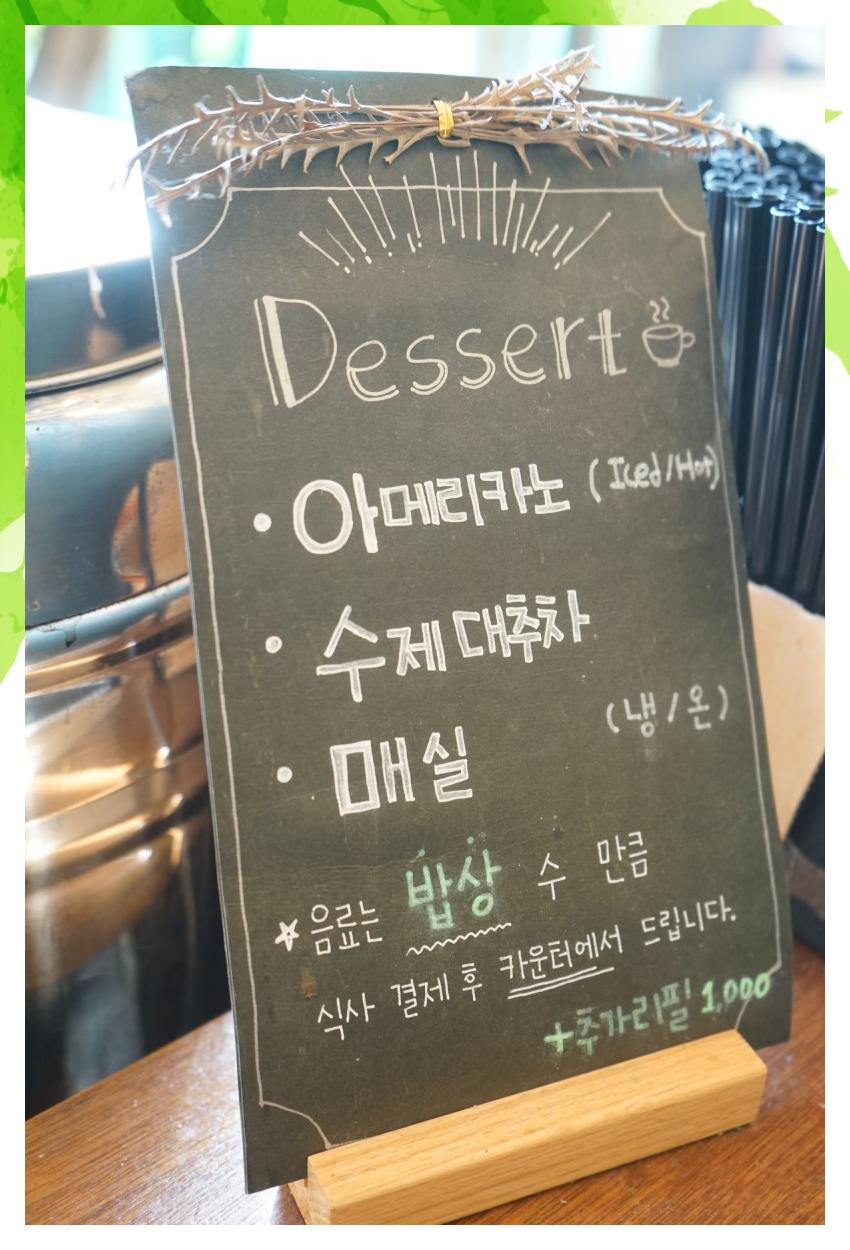 Dessert
• 아메리카노 (Iced/Hot)
• 수제 대추차
(냉/온)
• 매실
☆ 음료는 밥상 수 만큼
식사 결제 후 카운터에서 드립니다.
+추가리필 1,000